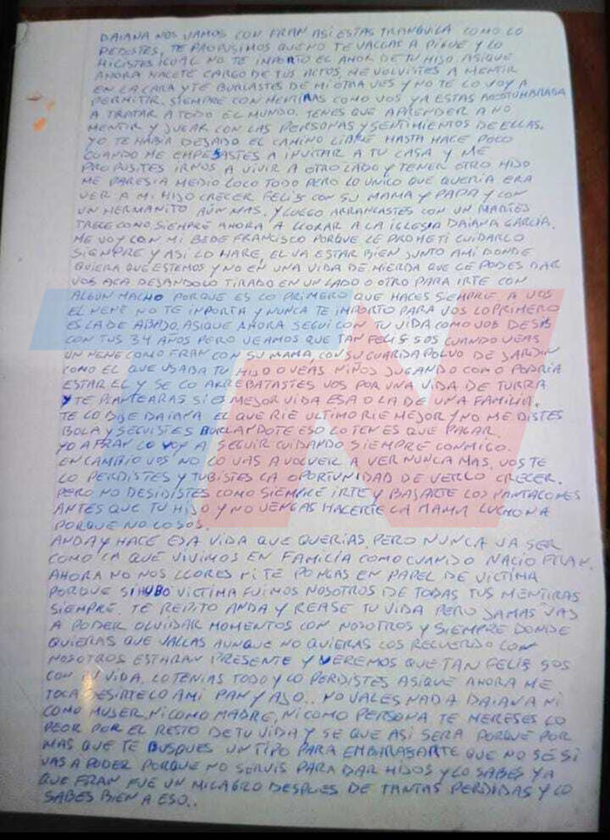 DAIANA NOS VAMOS CON FRAN ASI ESTAS TRANQUILA COMO LO
PEDISTES, TE PROPUSIMOS QUE NO TE VALLAS A PIGUE Y LO
HICISTES IGUAL NO TE INPORTO EL AMOR DE TU HIJO. ASIQUE
AHORA HACETE CARGO DE TUS ACTOS, ME VOLVISTES A MENTIR
EN LA CARA Y TE BURLASTES DE MI OTRA VES Y NO TE LO VOY A
PERMITIR. SIEMPRE CON MENTIRAS COMO VOS YA ESTAS ACOSTUMBRADA
A TRATAR A TODO EL MUNDO. TENES QUE APRENDER A NO
MENTIR Y JUGAR CON LAS PERSONAS Y SENTIMIENTOS DE ELLAS.
YO TE HABIA DEJADO EL CAMINO LIBRE HASTA HACE POCO
CUANDO ME EMPESASTES A INVITAR A TU CASA Y ME
PROPUSITES IRNOS A VIVIR A OTRO LADO Y TENER OTRO HIJO
ME PARESIA MEDIO LOCO TODO PERO LO UNICO QUE QUERIA ERA
VER A MI HIJO CRECER FELIS CON SU MAMA Y PAPA Y CON
UN HERMANITO AUN MAS. Y LUEGO ARRANCASTES CON UN MARTES
TRECE COMO SIEMPRE AHORA A LLORAR A LA IGLESIA DAIANA GARCIA.
ME VOY CON MI BEBE FRANCISCO PORQUE LE PROMETI CUIDARLO
SIEMPRE Y ASI LO HARE, EL VA ESTAR BIEN JUNTO AMI DONDE
QUIERA QUE ESTEMOS Y NO EN UNA VIDA DE MIERDA QUE LE PODES DAR
VOS ACA DEJANDOLO TIRADO EN UN LADO U OTRO PARA IRTE CON
ALGUN MACHO PORQUE ES LO PRIMERO QUE HACES SIEMPRE. A VOS
EL NENE NO TE IMPORTA Y NUNCA TE IMPORTO PARA VOS LO PRIMERO
ES LA DE ABAJO. ASIQUE AHORA SEGUI CON TU VIDA COMO VOS DESIS
CON TUS 34 AÑOS PERO VEAMOS QUE TAN FELIS SOS CUANDO VEAS
UN NENE COMO FRAN CON SU MAMA, CON SU GUARDAPOLVO DE JARDIN
COMO EL QUE USABA TU HIJO O VEAS NIÑOS JUGANDO COMO PODRIA
ESTAR EL Y SE LO ARREBATASTES VOS POR UNA VIDA DE TURRA
Y TE PLANTEARAS SI ES MEJOR VIDA ESA O LA DE UNA FAMILIA.
TE LO DIJE DAIANA EL QUE RIE ULTIMO RIE MEJOR Y NO ME DISTES
BOLA Y SEGUISTES BURLANDOTE ESO LO TENES QUE PAGAR.
YO A FRAN LO VOY A SEGUIR CUIDANDO SIEMPRE CONMIGO.
EN CAMBIO VOS NO LO VAS A VOLVER A VER NUNCA MAS. VOS TE
LO PERDISTES Y TUBISTES LA OPORTUNIDAD DE VERLO CRECER.
PERO NO DESIDISTES COMO SIEMPRE IRTE Y BAJARTE LOS PANTALONES
ANTES QUE TU HIJO Y NO VENGAS HACERTE LA MAMA LUCHONA
PORQUE NO LO SOS.
ANDA Y HACE ESA VIDA QUE QUERIAS, PERO NUNCA VA SER
COMO LA QUE VIVIMOS EN FAMILIA COMO CUANDO NACIO FRAN.
AHORA NO NOS LLORES NI TE PONGAS EN PAPEL DE VICTIMA
PORQUE SI HUBO VICTIMA FUIMOS NOSOTROS DE TODAS TUS MENTIRAS
SIEMPRE. TE REPITO ANDA Y REASE TU VIDA PERO JAMAS VAS
A PODER OLVIDAR MOMENTOS CON NOSOTROS Y SIEMPRE DONDE
QUIERAS QUE VALLAS AUNQUE NO QUIERAS LOS RECUERDO CON
NOSOTROS ESTARAN PRESENTE Y VEREMOS QUE TAN FELIS SOS
CON TU VIDA. LO TENIAS TODO Y LO PERDISTES ASIQUE AHORA ME
TOCA DESIRTELO AMI PAN Y AJO.. NO VALES NADA DAIANA NI
COMO MUJER, NI COMO MADRE, NI COMO PERSONA TE MERESES LO
PEOR POR EL RESTO DE TU VIDA Y SE QUE ASI SERA PORQUE POR
MAS QUE TE BUSQUES UN TIPO PARA EMBARASARTE QUE NO SE SI
VAS A PODER PORQUE NO SERVIS PARA DAR HIJOS Y LO SABES YA
QUE FRAN FUE UN MILAGRO DESPUES DE TANTAS PERDIDAS Y LO
SABES BIEN A ESO..
TN